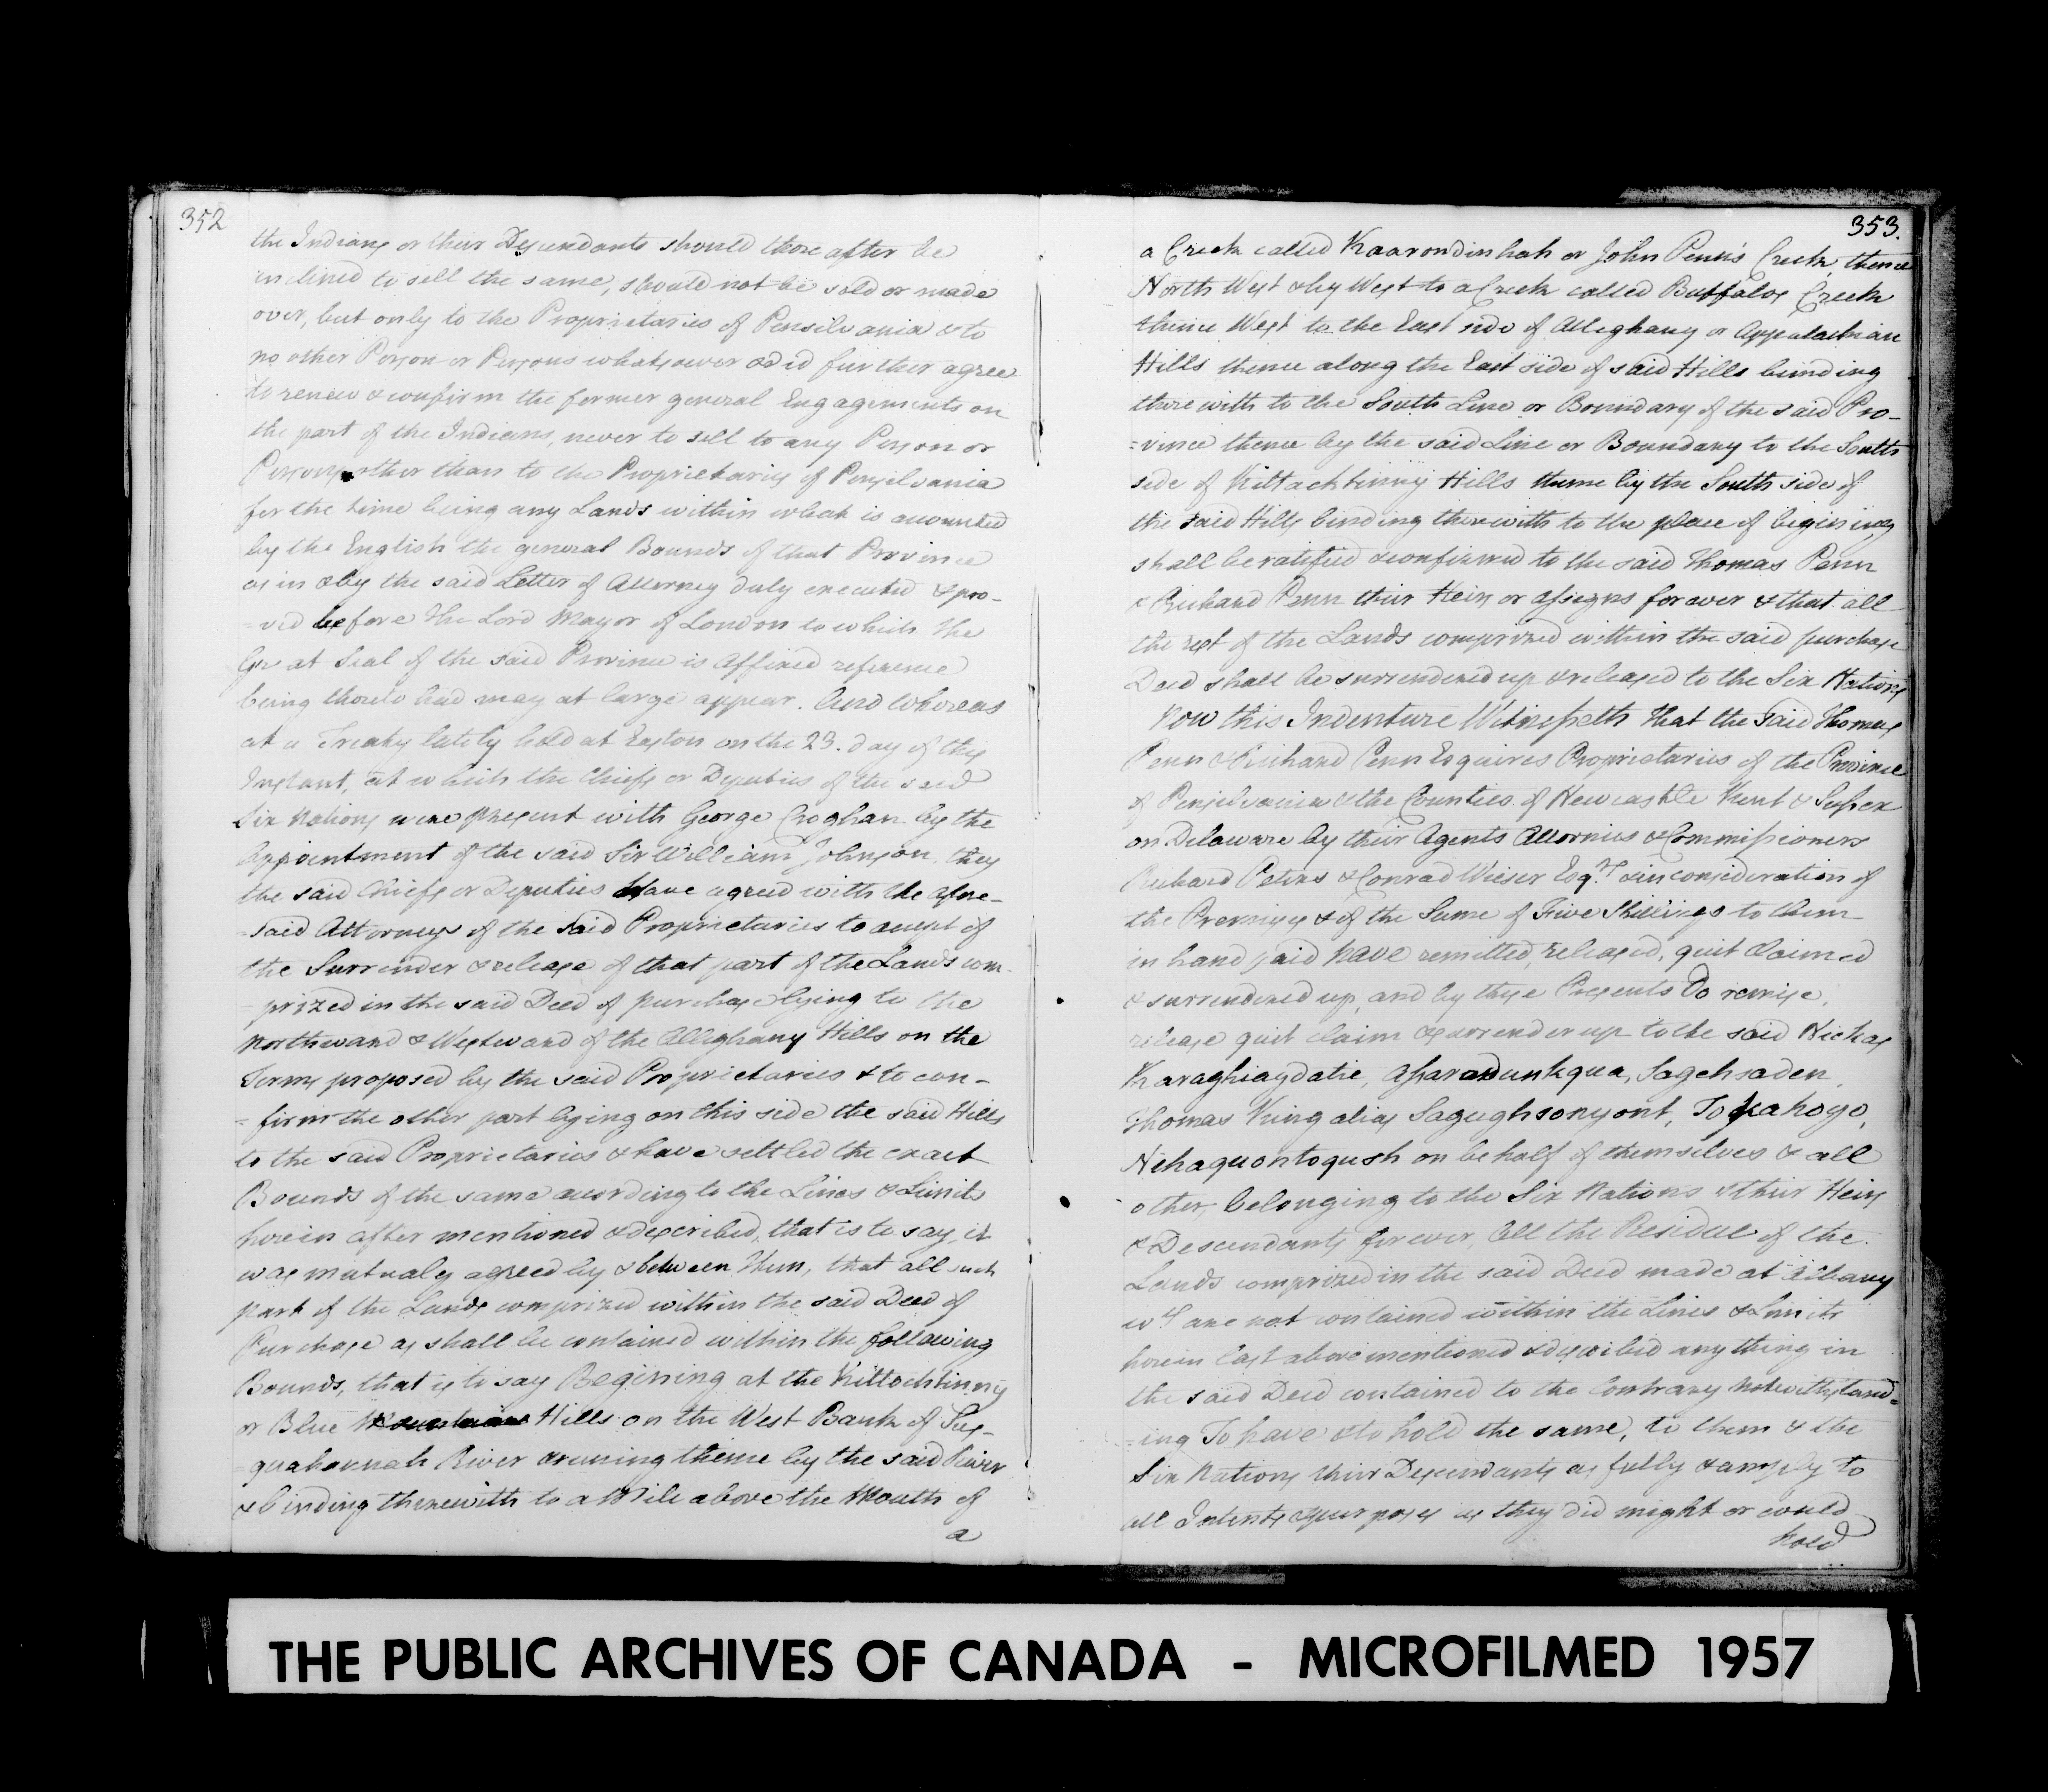 352
the Indians or their Descendants should those after be
inclined to sell the same, should not be sold or made
over, but only to the Proprietaries of Pensilvania & to
no other Person or Persons whatsoever & did further agree
to renew & confirm the former general Engagements on
the part of the Indians, never to sell to any Person or
Persons other than to the Proprietaries of Pensilvania
for the time being any Lands within what is accounted
by the English the general Bounds of that Province
as in & by the said Letter of Attorney duly executed & pro-
=ved before the Lord Mayor of London to which the
Great Seal of the said Province is affixed reference
being thereto had may at large appear. And Whereas
at a Treaty lately held at Easton on the 23. day of this
Instant, at which the Chiefs or Deputies of the said
Six Nations were present with George Croghan by the
Appointment of the said Sir William Johnson, they
the said Chiefs or Deputies Have agreed with the afore-
=said Attorneys of the said Proprietaries to accept of
the Surrender & release of that part of the Lands com-
=prized in the said Deed of purchase lying to the
Northward & Westward of the Alleghany Hills on the
Terms proposed by the said Proprietaries & to con-
=firm the other part lying on this side the said Hills
to the said Proprietaries & have settled the exact
Bounds of the same according to the Lines & Limits
herein after mentioned & described, that is to say, it
was mutualy agreed by & between Them, that all such
part of the Lands comprized within the said Deed of
Purchase as shall be contained within the following
Bounds, that is to say Begining at the Kittochtinny
or Blue Hills on the West Bank of Sus-
=quahannah River & runing thence by the said River
& binding therewith to a Mile above the Mouth of
a
353.
a Creek called Kaarondinhah or John Penn's Creek, thence
North West & by West to a Creek called Buffalos Creek
thence West to the East side of Alleghany or Appalachian
Hills thence along the East side of said Hills binding
therewith to the South Line or Boundary of the said Pro-
=vince thence by the said Line or Boundary to the South
side of Kittachtinny Hills thence by the South side of
the said Hills binding therewith to the place of begining
shall be ratified & confirmed to the said Thomas Penn
& Richard Penn their Heirs or Assigns for ever & that all
the rest of the Lands comprized within the said purchase
Deed shall be surrendered up & released to the Six Nations
Now this Indenture Witnesseth that the said Thomas
Penn & Richard Penn Esquires Proprietaries of the Province
of Pensilvania & the Counties of Newcastle Kent & Sussex
on Delaware by their Agents Attornies & Commissioners
Richard Peters & Conrad Wieser Esqrs & in consideration of
the Premises & of the Sume of Five Shillings to them
in hand paid have remitted, released, quit claimed
& surrendered up, and by these Presents Do remise,
release quit claim & surrender up to the said Nichas
Karaghiaydatie, Assaradunkqua, Sagehsaden,
Thomas King alias Sagughsonyont, Tokahogo,
Nehaquontoqush on behalf of themselves & all
other, belonging to the Six Nations & their Heirs
& Descendants forever, All the Residue of the
Lands comprized in the said Deed made at Albany
wch are not contained within the Lines & Limits
herein last above mentioned & described any thing in
the said Deed contained to the Contrary Notwithstand=
=ing To have & to hold the same, to them & the
Six Nations their Descendants as fully & amply to
all Intents & purposes as they did might or could
hold
THE PUBLIC ARCHIVES OF CANADA - MICROFILMED 1957